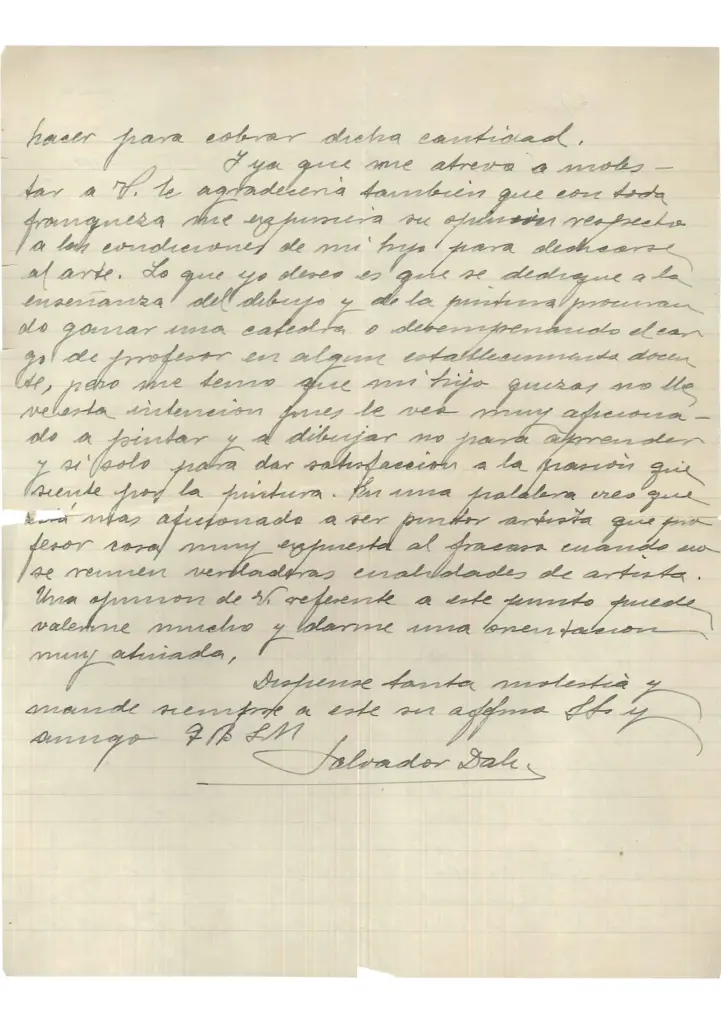 hacer para cobrar dicha cantidad.
Y ya que me atrevo a moles-
tar a V. le agradeceria también que con toda
franqueza me expusiera su opinión respecto
a las condiciones de mi hijo para dedicarse
al arte. Lo que yo deseo es que se dedique a la
enseñanza del dibujo y de la pintura procuran
do ganar una catedra o desempeñando el car
go de profesor en algun establecimiento docen
te, pero me temo que mi hijo quizas no lle
ve esta intencion pues le veo muy aficiona-
do a pintar y a dibujar no para aprender
y si solo para dar satisfaccion a la pasión que
siente por la pintura. En una palabra creo que
está mas aficionado a ser pintor artista que pro
fesor cosa muy expuesta al fracaso cuando no
se reunen verdaderas cualidades de artista.
Una opinion de V. referente a este punto puede
valerme mucho y darme una orientacion
muy atinada.
Dispense tanta molestia y
mande siempre a este su affmo SS y
amigo
Salvador Dali